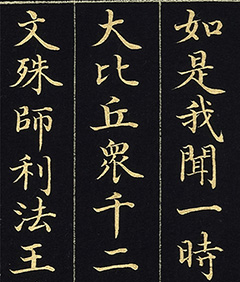 如是我聞一時
大比丘眾千二
文殊師利法王